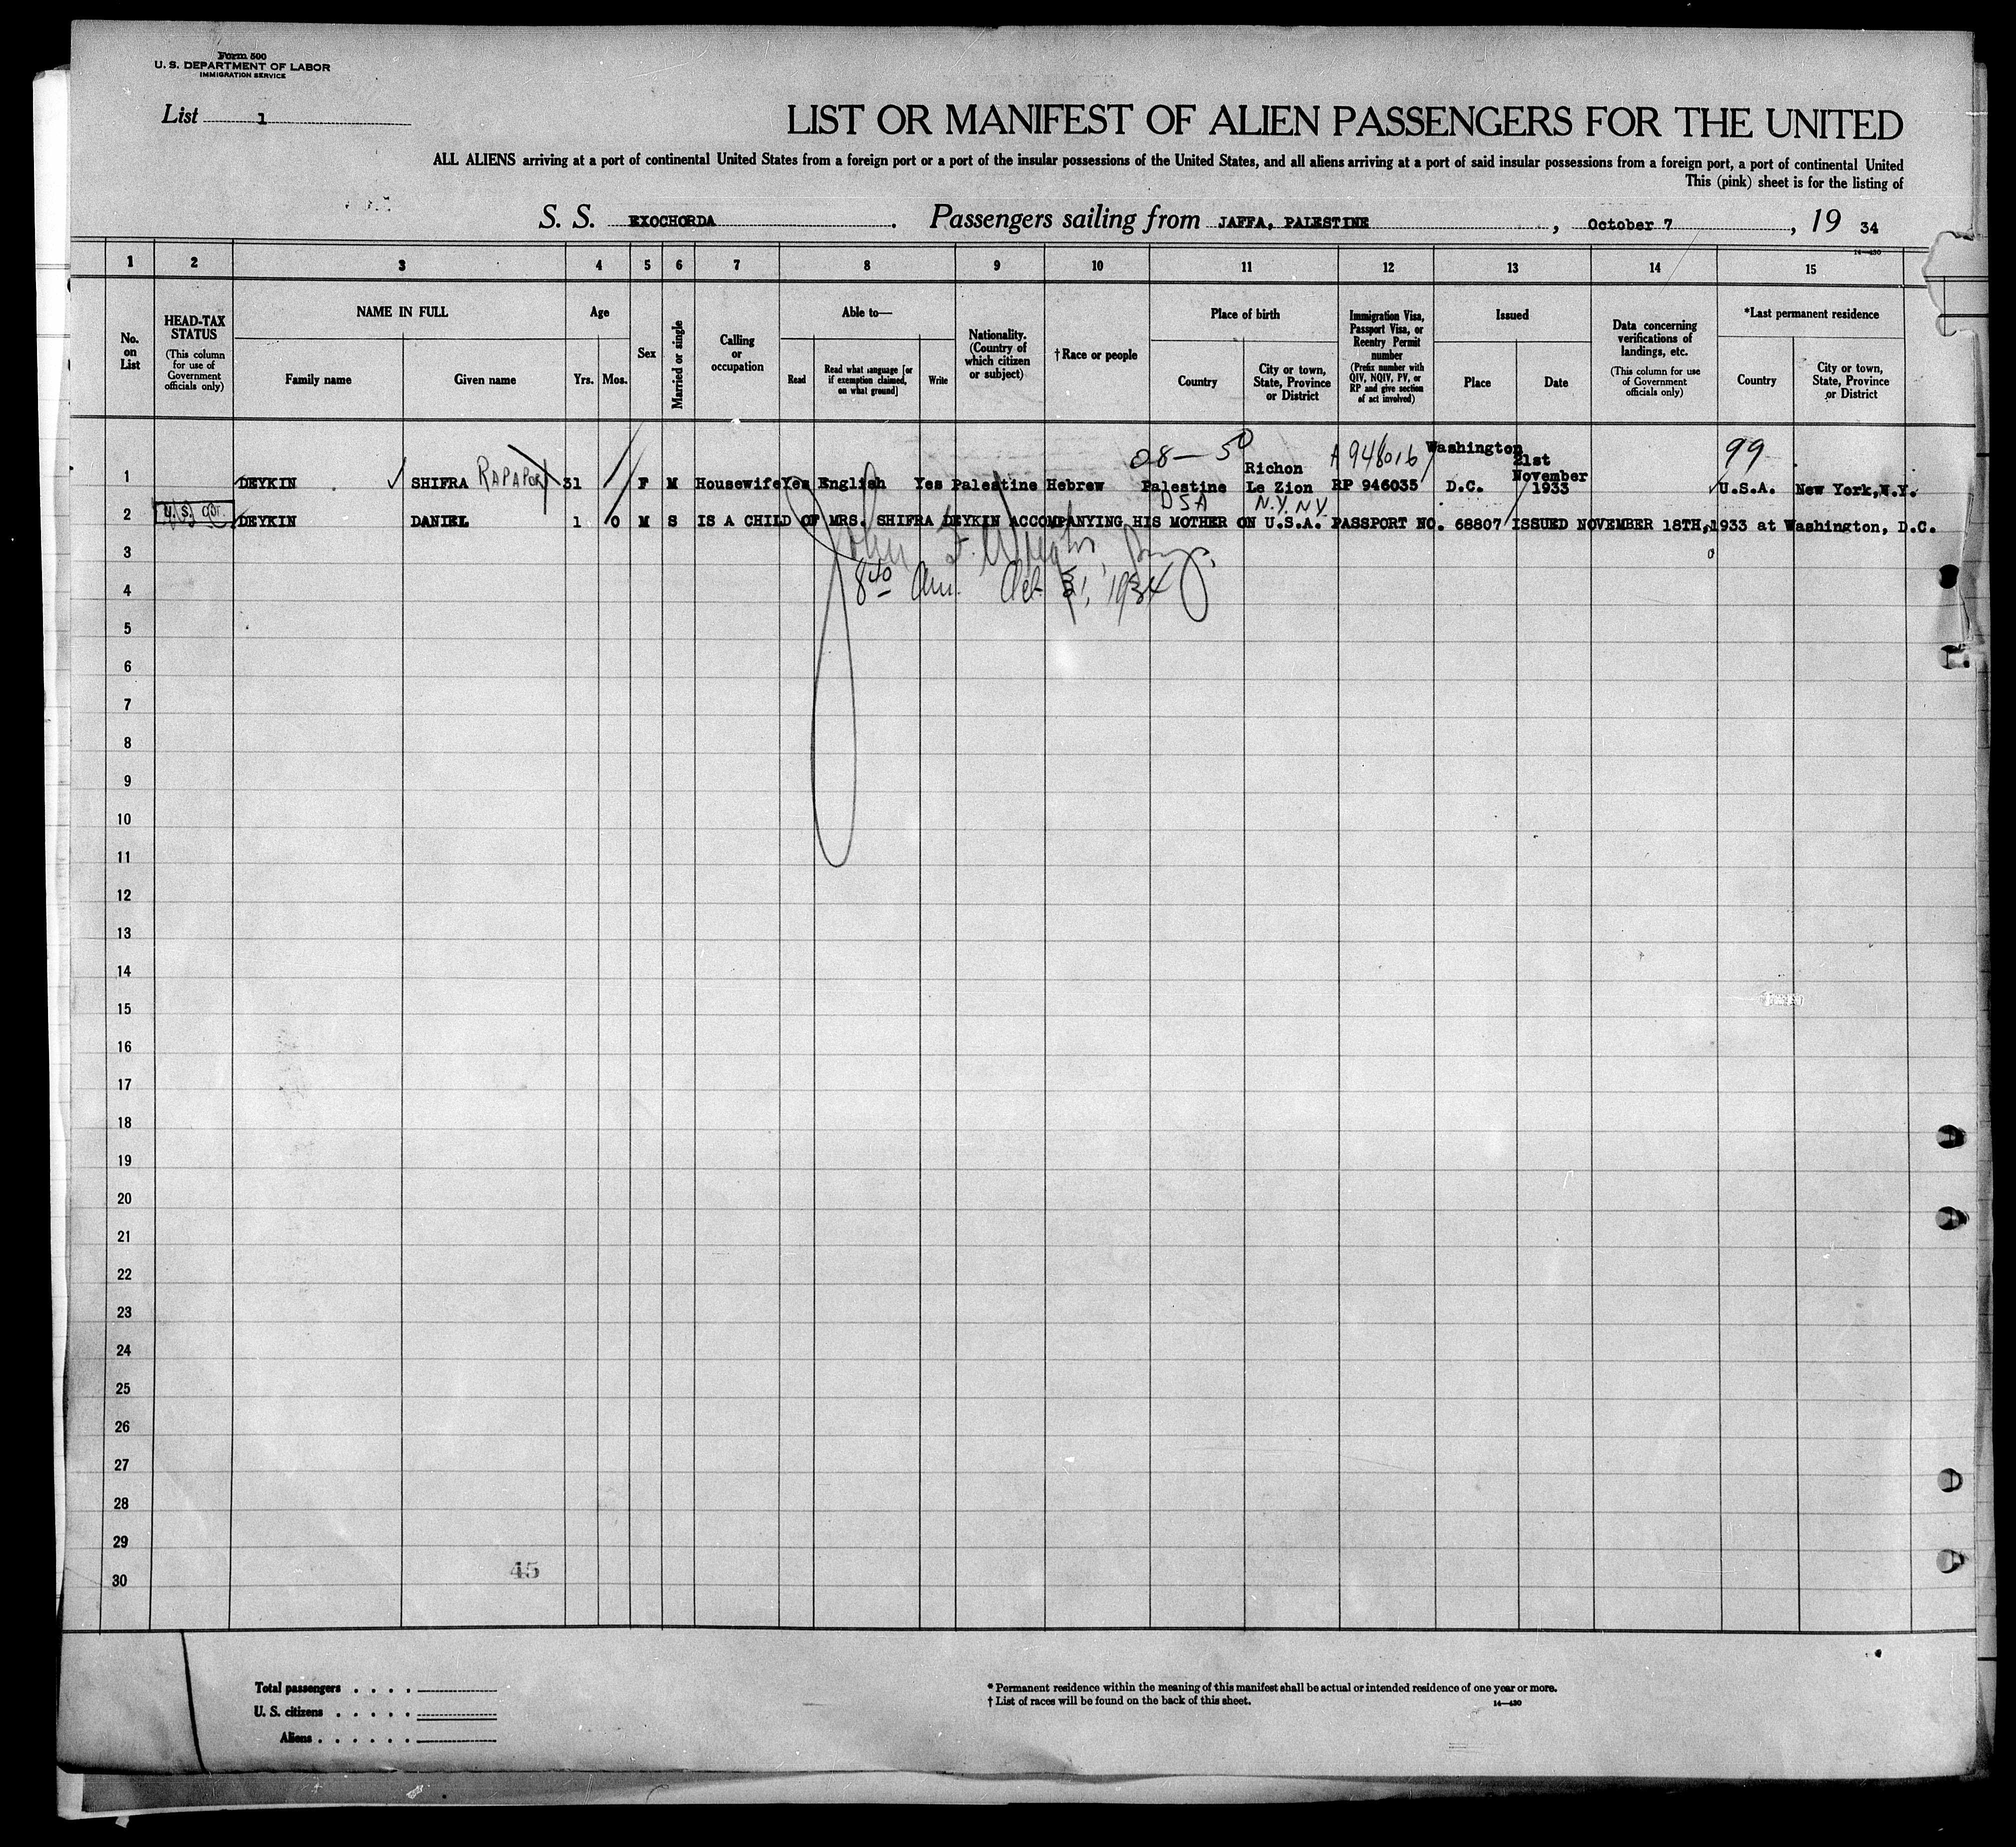 Form 500
U. S. DEPARTMENT OF LABOR
IMMIGRATION SERVICE
List 1
LIST OR MANIFEST OF ALIEN PASSENGERS FOR THE UNITED
ALL ALIENS arriving at a port of continental United States from a foreign port or a port of the insular possessions of the United States, and all aliens arriving at a port of said insular possessions from a foreign port, a port of continental United
This (pink) sheet is for the listing of
S. S. EXOCHORDA. Passengers sailing from JAFFA, PALESTINE, October 7, 19 34
14—430
1 2 3 4 5 6 7 8 9 10 11 12 13 14 15
No. on List
HEAD-TAX STATUS
(This column for use of Government officials only)
NAME IN FULL
Family name
Given name
Age
Yrs.
Mos.
Sex
Married or single
Calling or occupation
Able to—
Read
Read what language [or if exemption claimed, on what ground]
Write
Nationality. (Country of which citizen or subject)
†Race or people
Place of birth
Country
City or town, State, Province or District
Immigration Visa, Passport Visa, or Reentry Permit number
(Prefix number with QIV, NQIV, PV, or RP and give section of act involved)
Issued
Place
Date
Data concerning verifications of landings, etc.
(This column for use of Government officials only)
*Last permanent residence
Country
City or town, State, Province or District
1 DEYKIN SHIFRA RAPAPORT 31 F M Housewife Yes English Yes Palestine Hebrew Palestine Richon Le Zion RP 946035 Washington D.C. 21st November 1933 U.S.A. New York,N.Y.
08—50
A 948016
99
USA N.Y. N.Y.
2 DEYKIN DANIEL 1 0 M S IS A CHILD OF MRS. SHIFRA DEYKIN ACCOMPANYING HIS MOTHER ON U.S.A. PASSPORT NO. 68807 ISSUED NOVEMBER 18TH,1933 at Washington, D.C.
John F.
3
8 40 Am. Oct 31, 1934
4
5
6
7
8
9
10
11
12
13
14
15
16
17
18
19
20
21
22
23
24
25
26
27
28
29
45
30
Total passengers
U. S. citizens
Aliens
* Permanent residence within the meaning of this manifest shall be actual or intended residence of one year or more.
† List of races will be found on the back of this sheet.
14—430